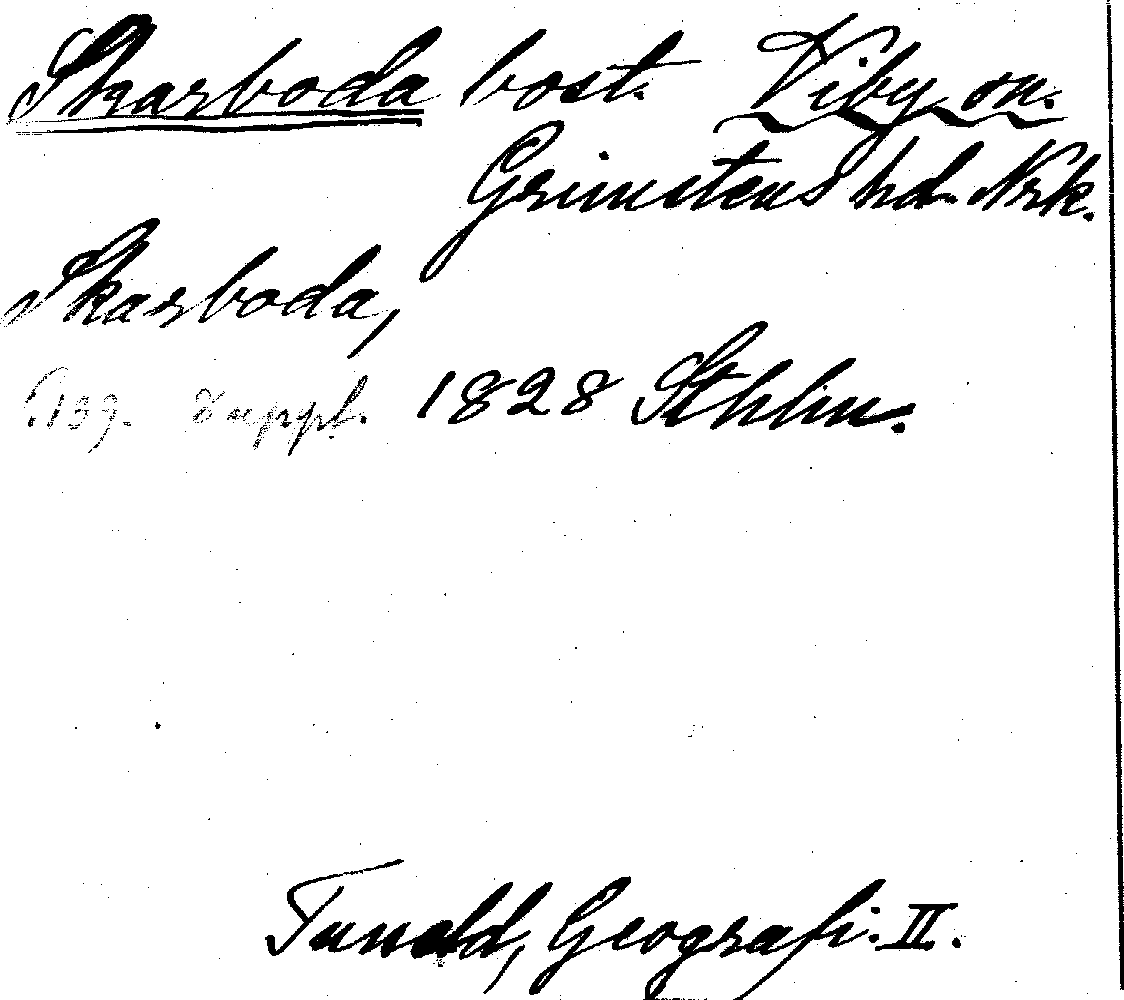 Skarboda bost. Viby sn.
Grimstens hd. Nrk.
Skarboda,
S. 139. Suppl. 1828 Sthlm.
Tuneld, Geografi. II.